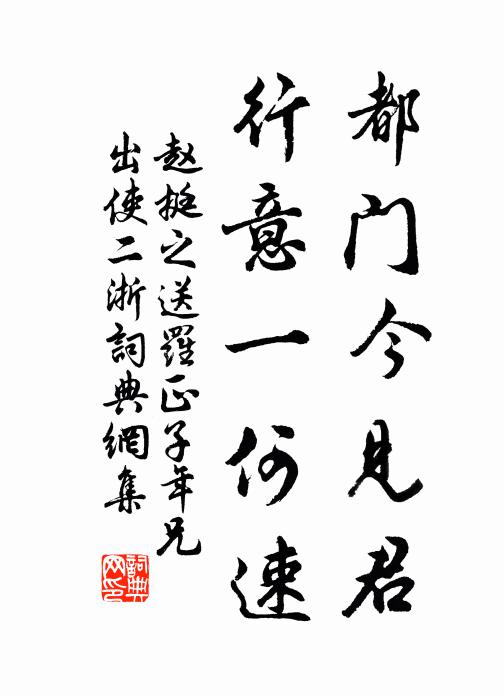 都门今見君
行意一何速
赵挺之送羅正子年兄
出使二浙詞典網集
詞典
网印